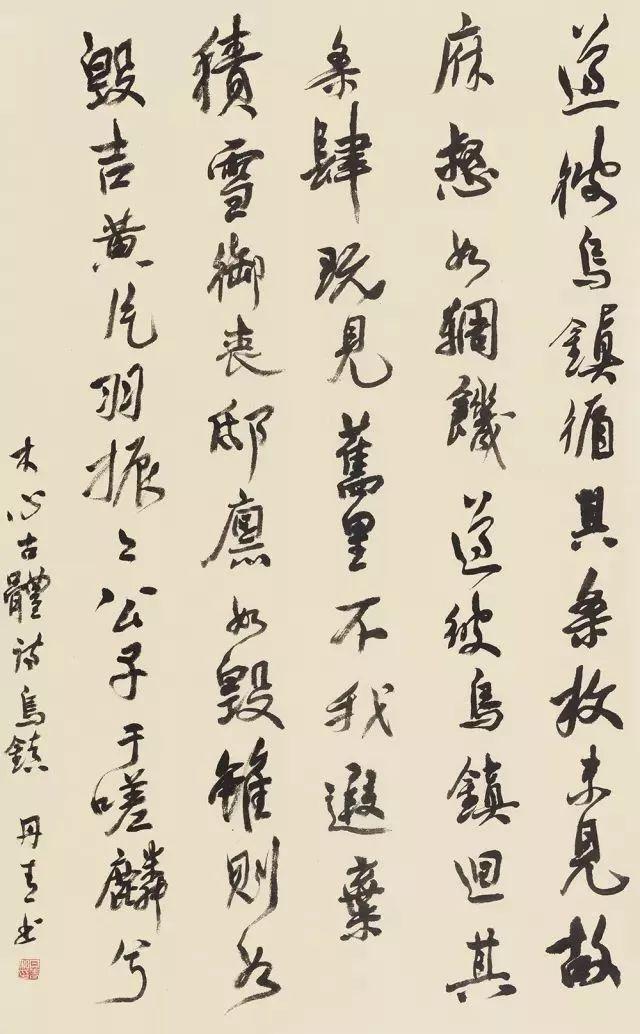 遵彼烏鎮循其条枚未見故
麻惄如輖饑遵彼烏鎮迴其
条肄既見舊里不我遐棄
積雪御喪邸廩如毀雖則如
毀吉黃片羽振々公子于嗟麟兮
木心古體詩烏鎮 丹青书